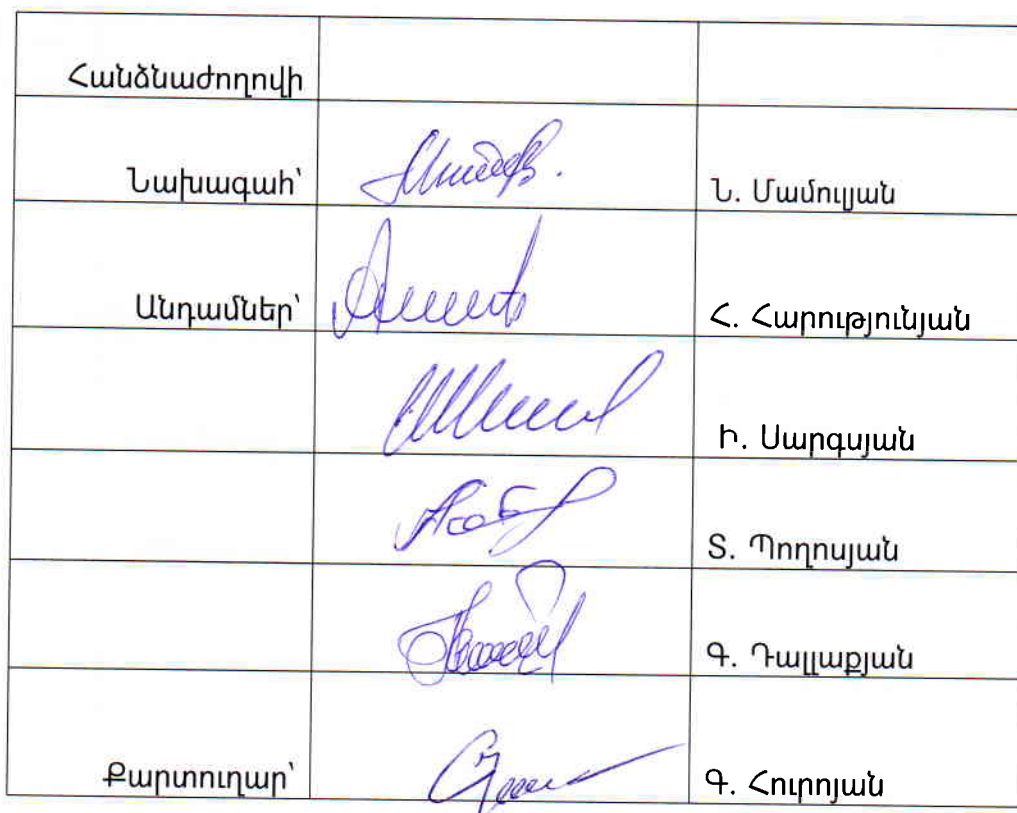 Հանձնաժողովի
Նախագահ՝ Ն. Մամուլյան
Անդամներ՝ Հ. Հարությունյան
Ի. Սարգսյան
Տ. Պողոսյան
Գ. Դալլաքյան
Քարտուղար՝ Գ. Հուրոյան